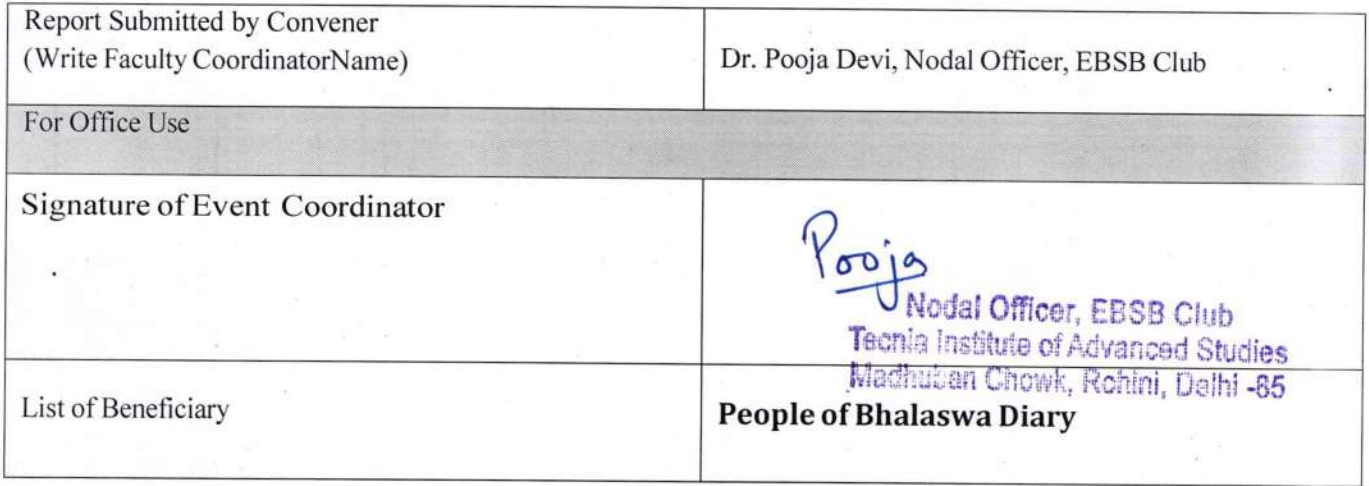 Report Submitted by Convener
(Write Faculty CoordinatorName)
Dr. Pooja Devi, Nodal Officer, EBSB Club
For Office Use
Signature of Event Coordinator
Pooja
Nodal Officer, EBSB Club
Tecnia Institute of Advanced Studies
Madhuban Chowk, Rohini, Delhi -85
List of Beneficiary
People of Bhalaswa Diary